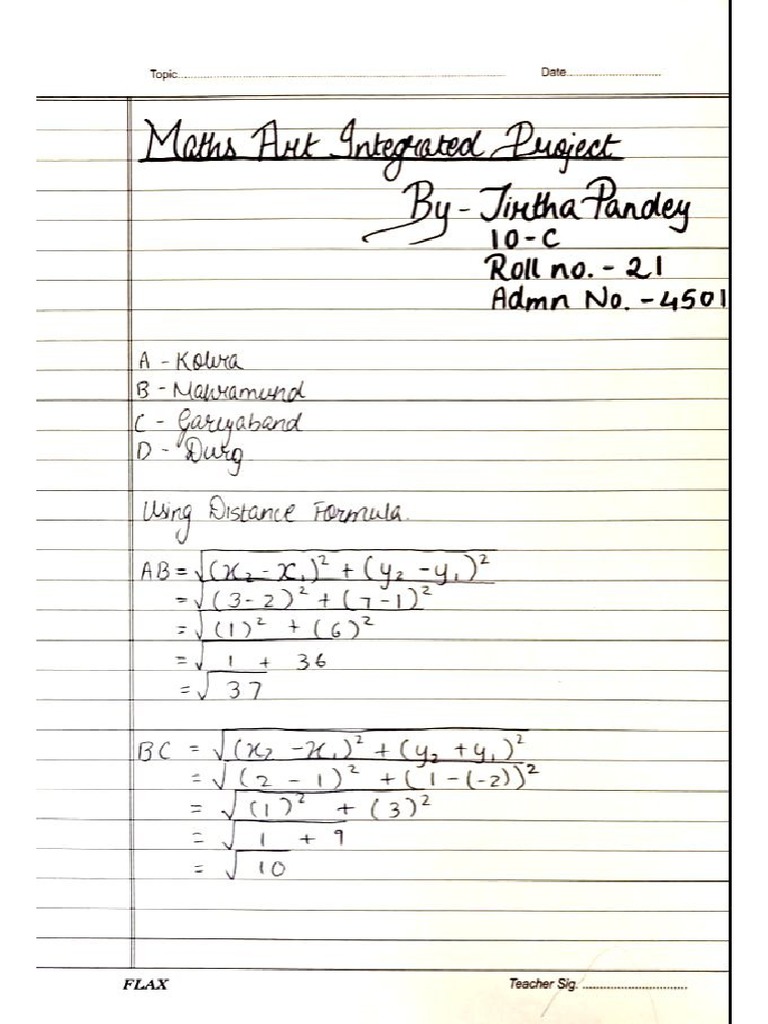 Topic.......... Date..........
Maths Art Integrated Project
By - Tirtha Pandey
10-C
Roll no. - 21
Admn No. - 4501
A - Kowra
B - Mahramund
C - Gariyaband
D - Durg
Using Distance Formula.
AB = √(x₂ - x₁)² + (y₂ - y₁)²
= √(3-2)² + (7-1)²
= √(1)² + (6)²
= √1 + 36
= √37
BC = √(x₂ - x₁)² + (y₂ + y₁)²
= √(2 - 1)² + (1-(-2))²
= √(1)² + (3)²
= √1 + 9
= √10
FLAX Teacher Sig. ..........